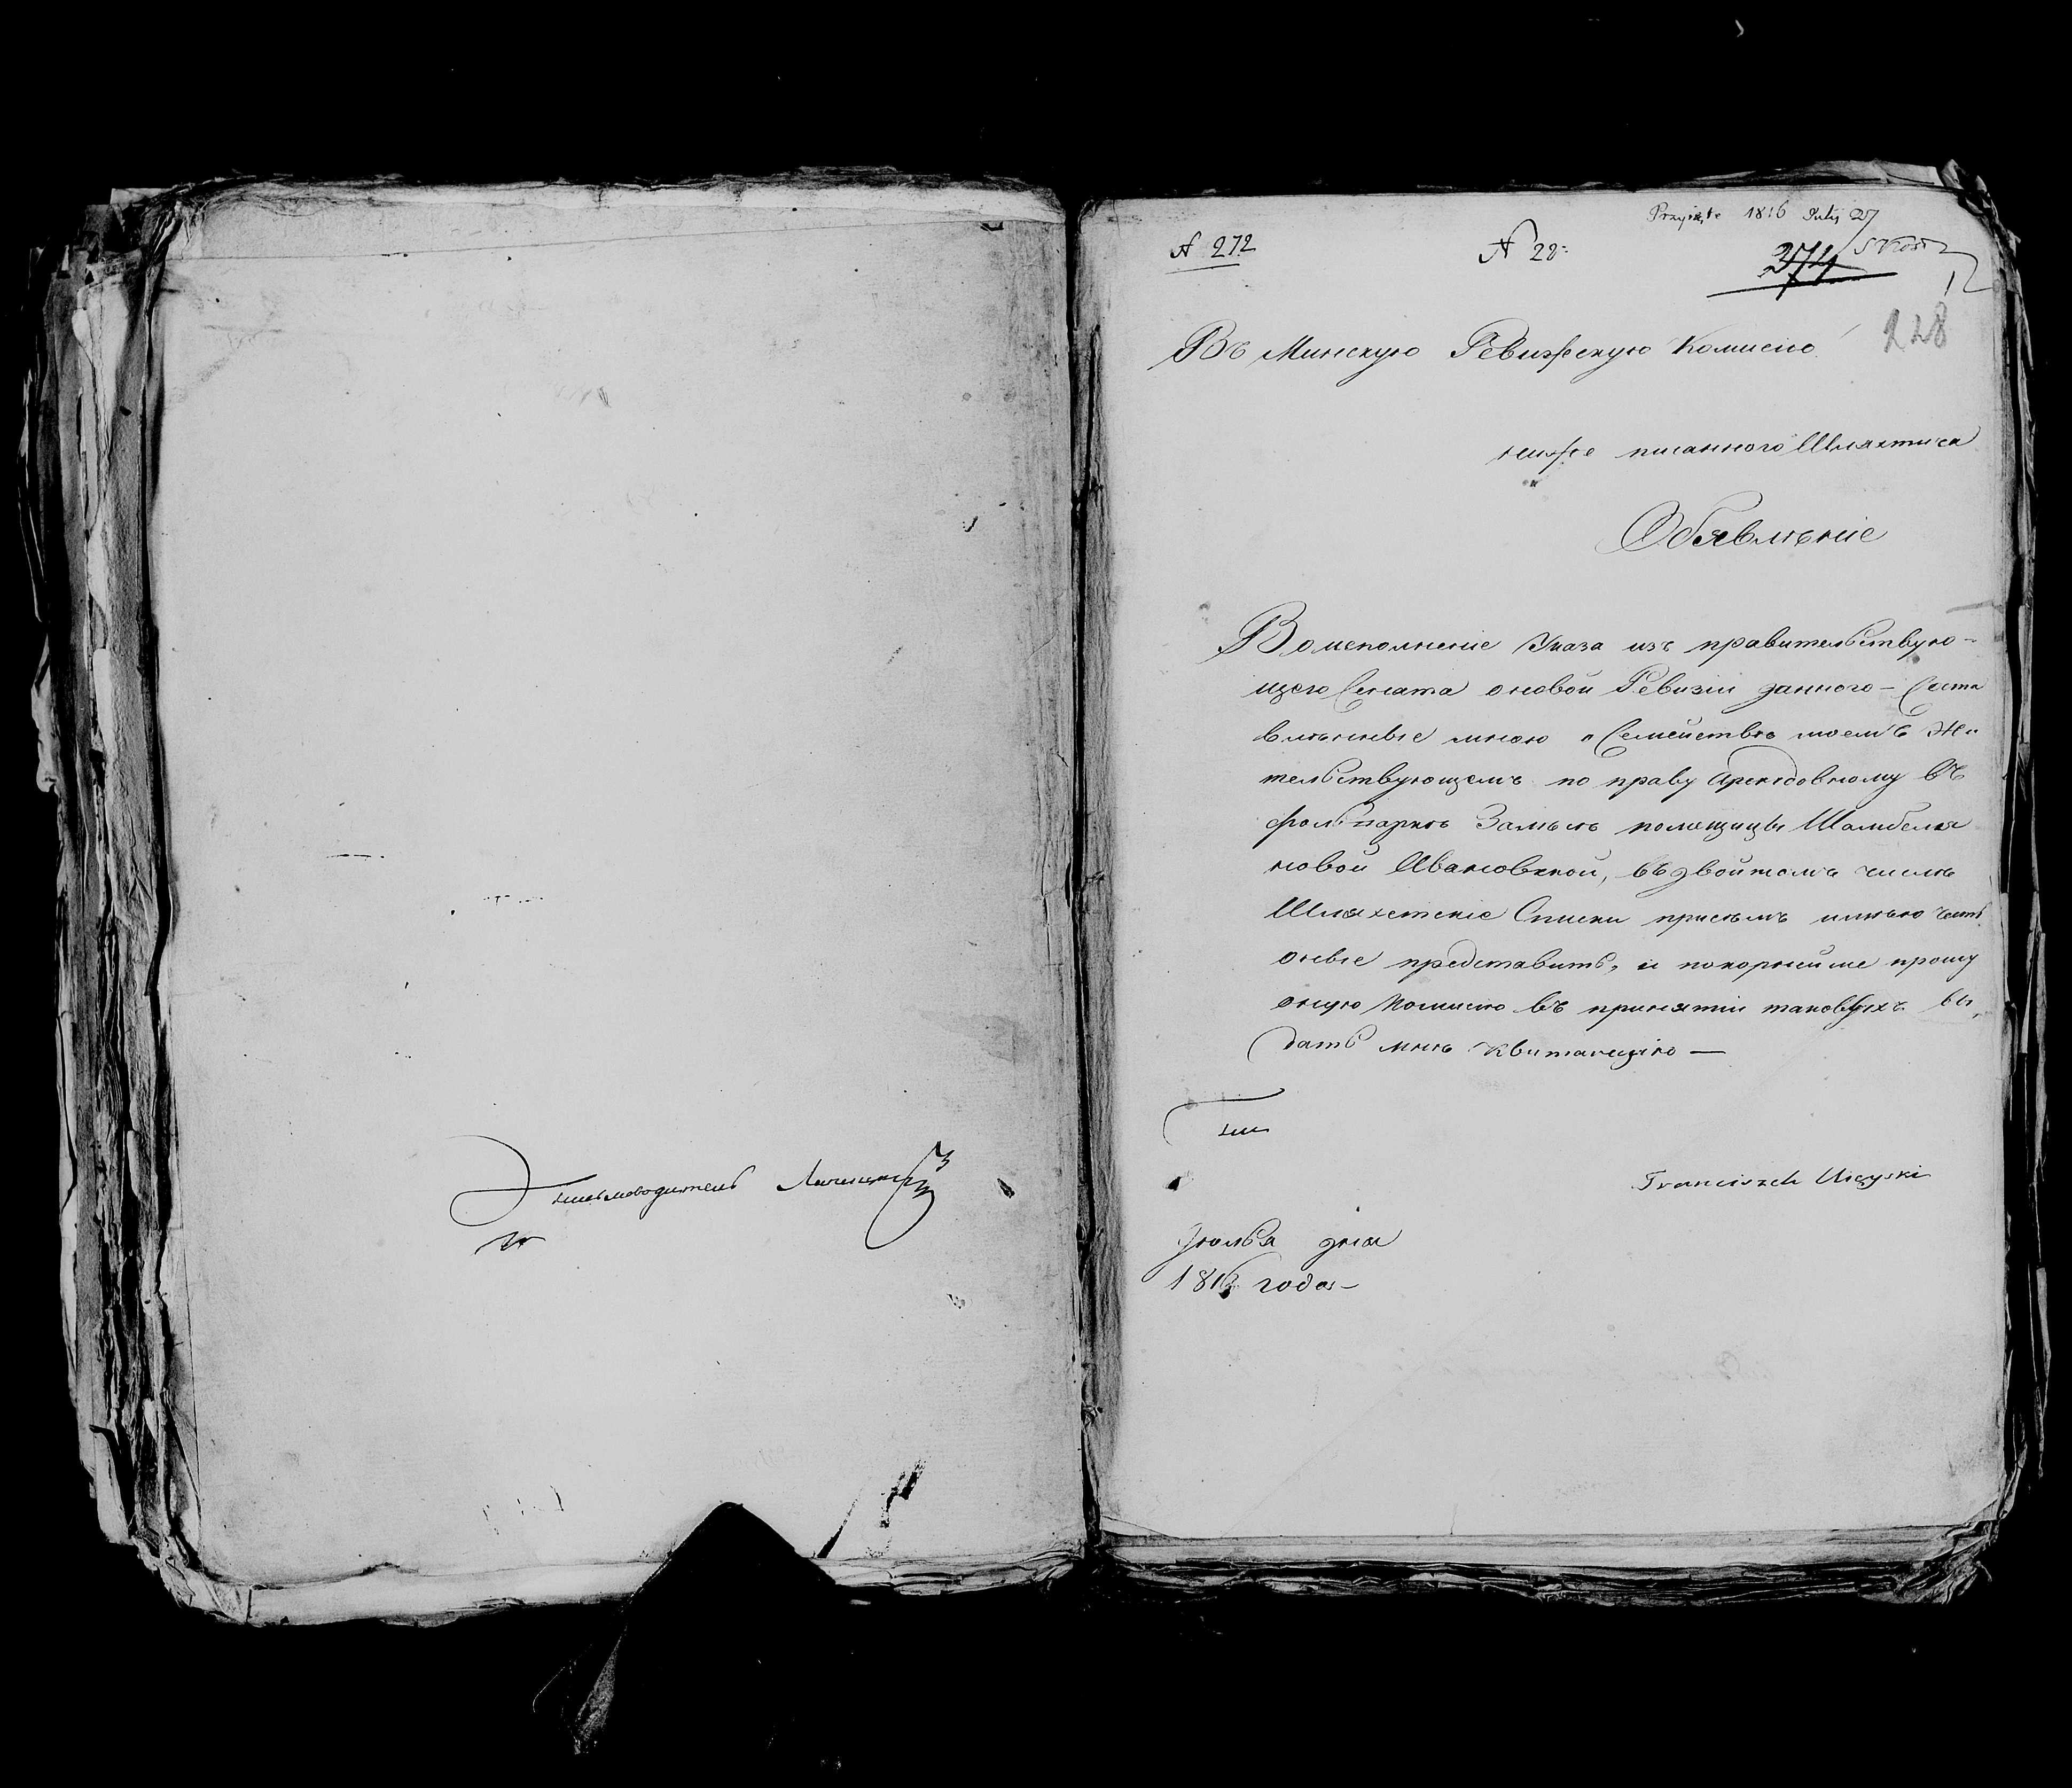 Письмоводитель
Przyięte 1816 Julij 27
№ 272
№ 28:
374
228
Въ Минскую Ревижскую Комисию
ниже писанного Шляхтича
Обявлѣние
Во исполнение Указа изъ правительствую-
щего Сената о новой Ревизіи данного - Соста
влѣнные мною о Семействѣ моемъ Жи
тельствующемъ по праву Арендовному въ
фольварке Замысле помещицы Шамбеля
новой Ивановской, въ двойномъ числѣ
Шляхетские Списки присемъ имѣю честь
оные представить, и покорнейше прошу
оную Комисию въ принятии таковыхъ вы,
дать мнѣ Квитанцию —
Franciszek
Июлья дня
1816 года -